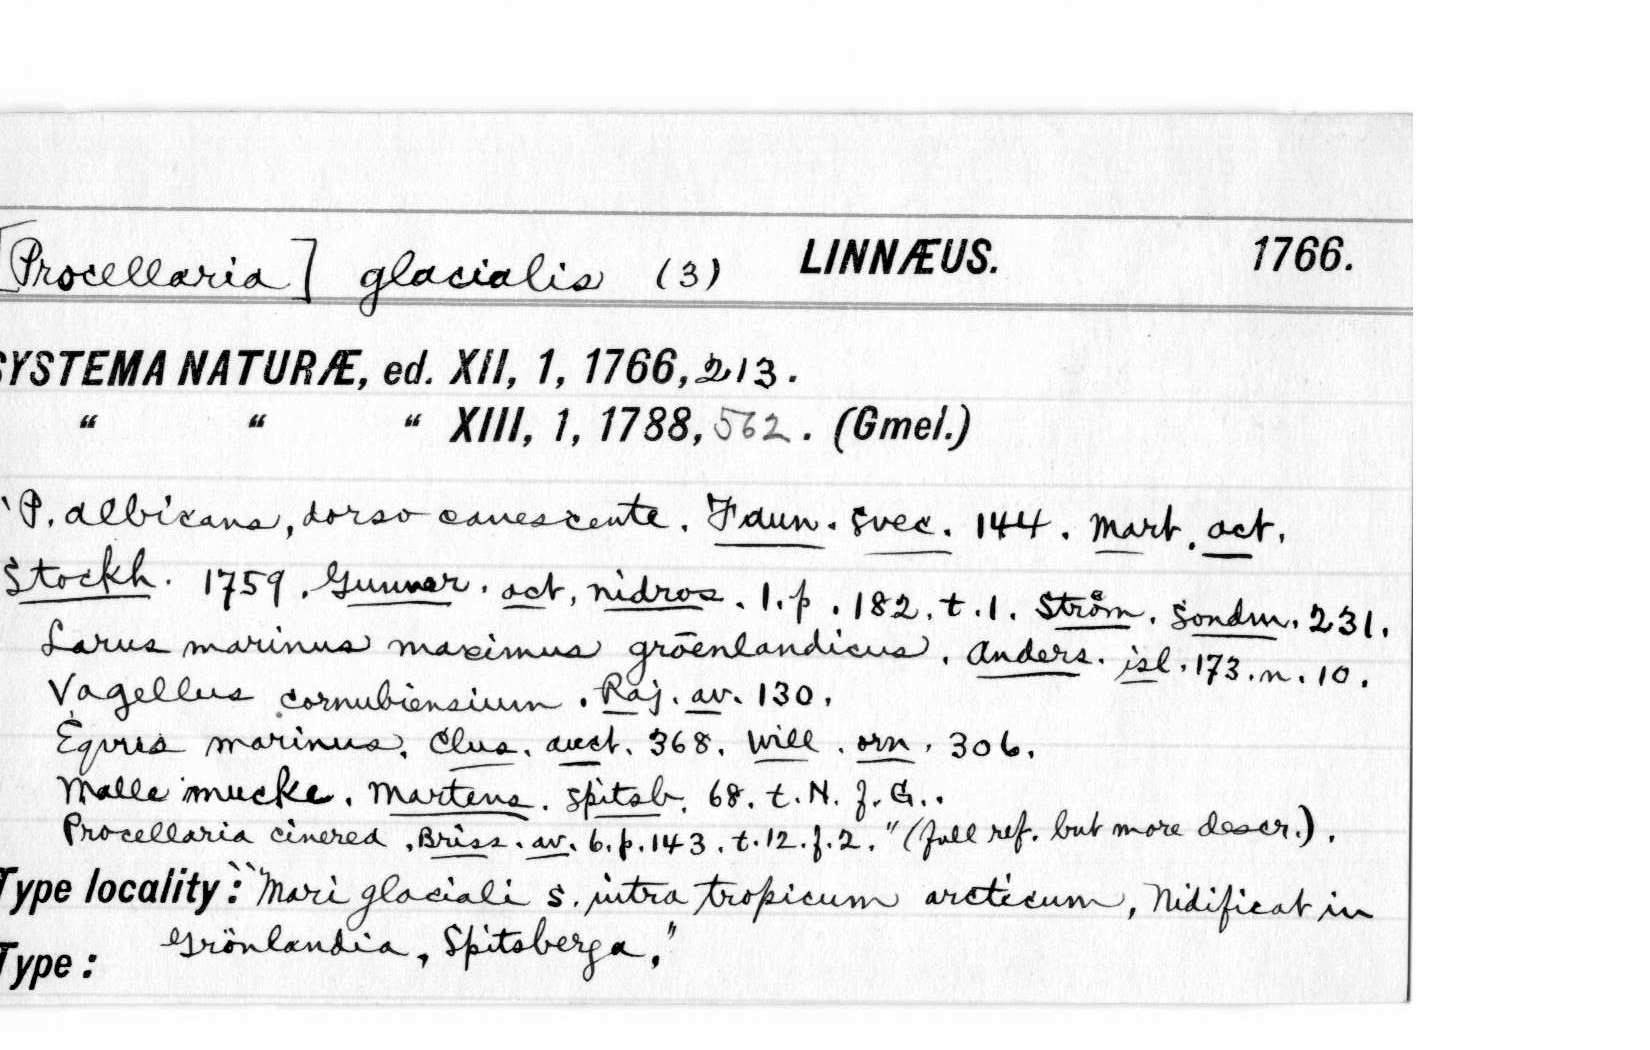 [Procellaria] glacialis (3) LINNÆUS. 1766.
SYSTEMA NATURÆ, ed. XII, 1, 1766, 213.
" " " XIII, 1, 1788, 562. (Gmel.)
"P. albicans, dorso canescente. Faun. svec. 144. Mart. act.
Stockh. 1759. Gunner. act. nidros. 1. p. 182. t. 1. Ström. sondm. 231.
Larus marinus maximus gröenlandicus. Anders. isl. 173. n. 10.
Vagellus cornubiensium. Raj. av. 130.
Equus marinus. Clus. auct. 368. Will. orn. 306.
Malle mucke. Martens. spitsb. 68. t. N. f. G..
Procellaria cinerea. Briss. av. 6. p. 143. t. 12. f. 2." (full ref. but more descr.).
Type locality: "Mari glaciali s. intra tropicum arcticum, Nidificat in
Grönlandia, Spitsberga,"
Type: